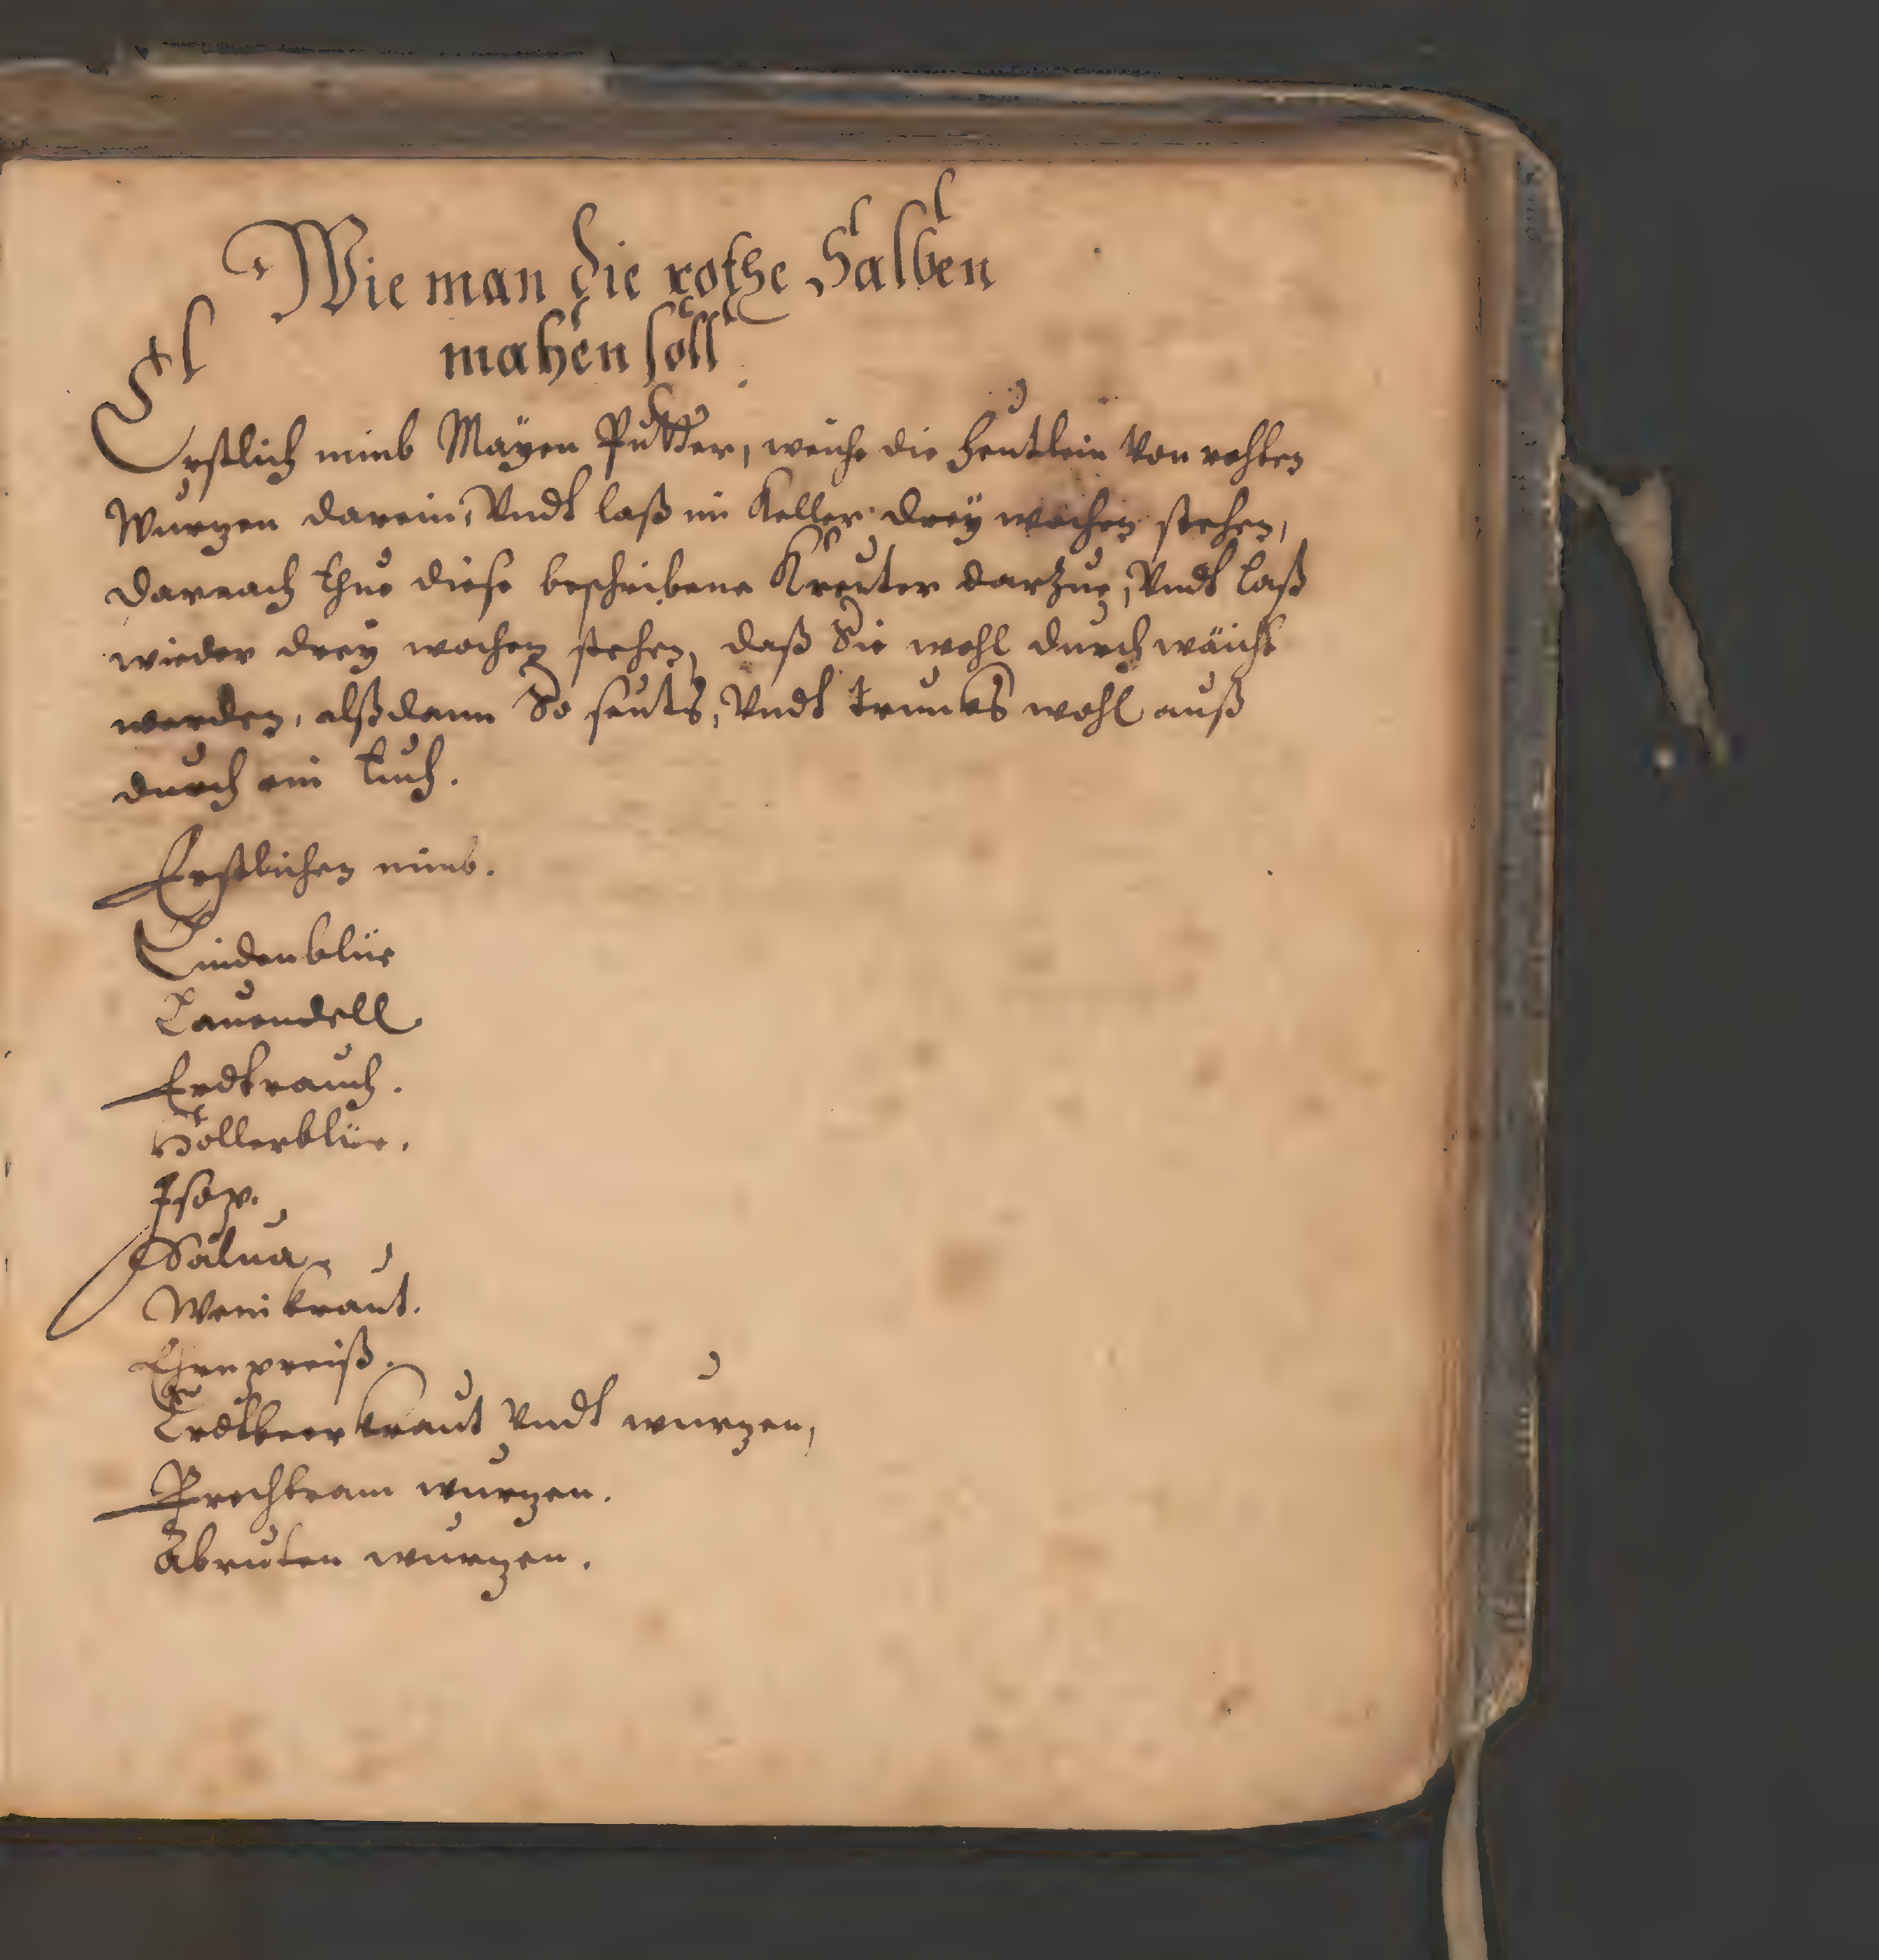 Wie man die rothe Salben
machen soll
Erstlich nimb Mayen Putter, weiche die heutlein von rohten
Wurzen darein, Vndt laß im Keller drey wochen stehen,
darnach thue diese beschribene Kreuter darzue, Vndt laß
wieder drey wochen stehen, daß Sie wohl durch wäicht
werden, alßdann So seuts, Vndt truckhs wohl auß
durch ein tuch.
Erstlichen nimb.
Lindenblüe
Lauendell
Erdtrauch.
Hollerblüe.
Isop.
Salua
Weinkraut.
Ehrnpreiß.
Erdtbeer kraut Vndt wurzen,
Prechtram wurzen.
Abruten wurzen.